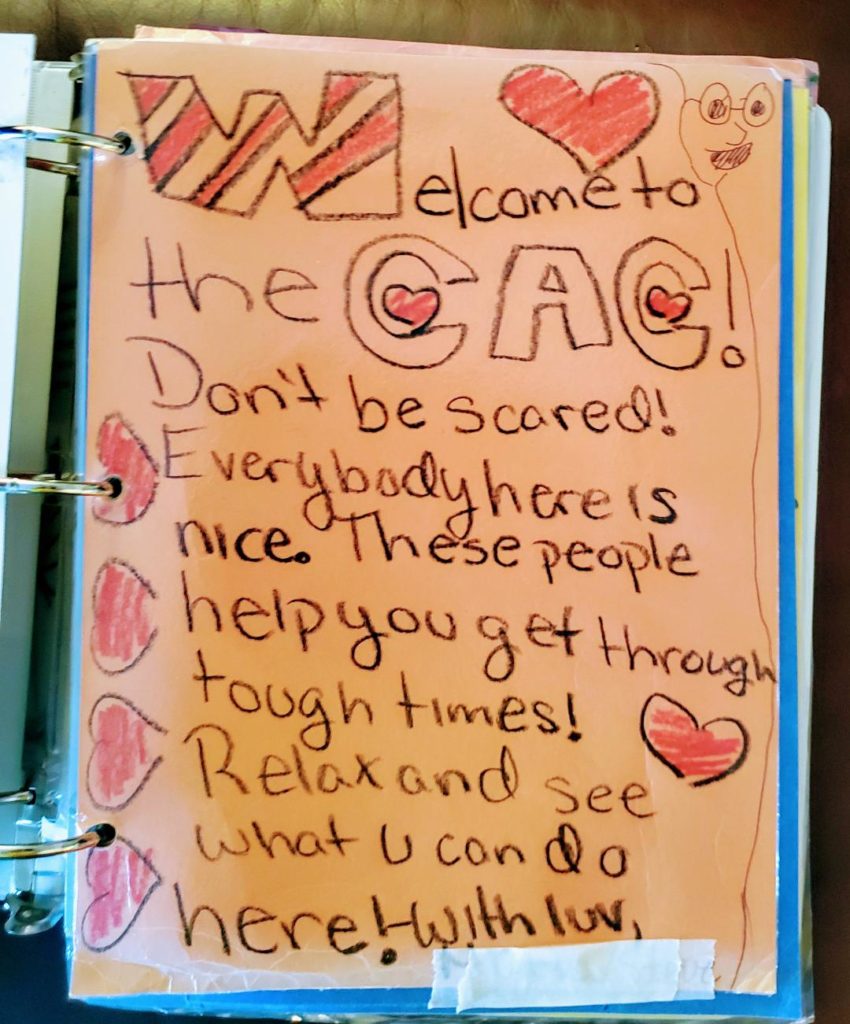 Welcome to
the CAC!
Don't be scared!
Everybody here is
nice. These people
help you get through
tough times!
Relax and see
what u can do
here! -with luv,